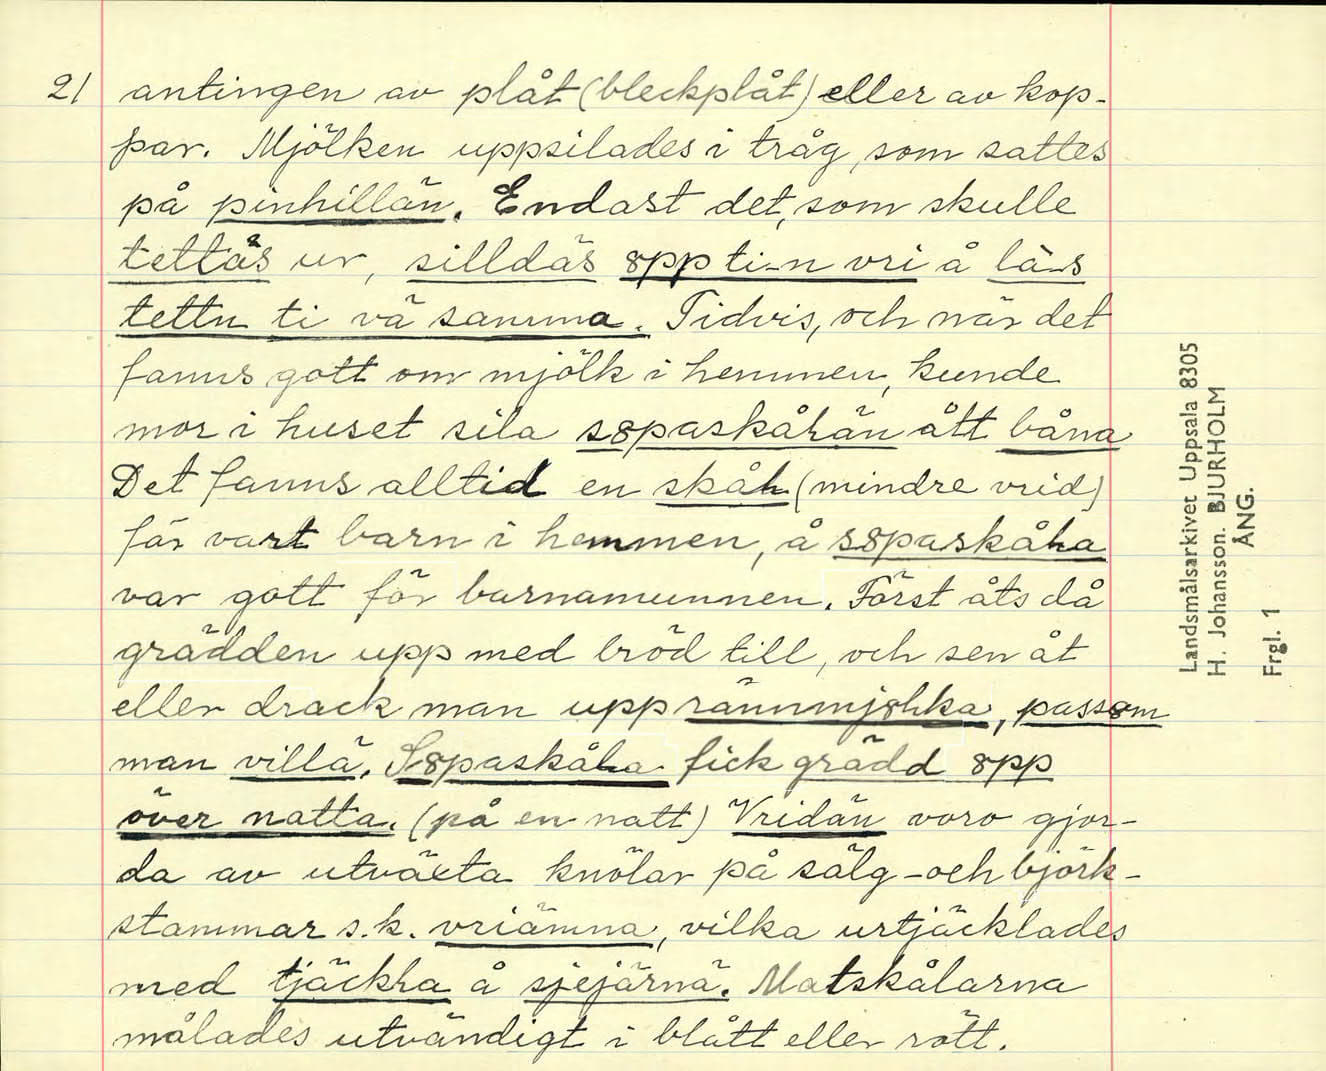 21 antingen av plåt (bleckplåt) eller av kop-
par. Mjölken uppsilades i tråg, som sattes
på pinhillän. Endast det, som skulle
tettäs ur, silldäs 8pp ti-n vri å lä-s
tettn ti vä samma. Tidvis, och när det
fanns gott om mjölk i hemmen, kunde
mor i huset sila s8paskåhän ått båna
Det fanns alltid en skåh (mindre vrid)
för vart barn i hemmen, å s8paskåha
var gott för barnamunnen. Först åts då
grädden upp med bröd till, och sen åt
eller drack man upp rännmj8hka, pass8m
man villä. S8paskåha fick grädd 8pp
över natta. (på en natt) Vridän voro gjor-
da av utväxta knölar på sälg- och björk-
stammar s.k. vriämna, vilka urtjäcklades
med tjäckha å sjejärnä. Matskålarna
målades utvändigt i blått eller rött.
Landsmålsarkivet Uppsala 8305
H. Johansson. BJURHOLM
ÅNG.
Frgl. 1